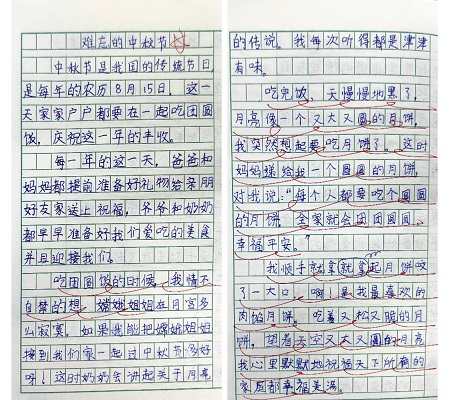 难忘的中秋节
中秋节是我国的传统节日,
是每年的农历8月15日。这一
天家家户户都要在一起吃团圆
饭,庆祝这一年的丰收。
每一年的这一天,爸爸和
妈妈都提前准备好礼物给亲朋
好友家送上祝福,爷爷和奶奶
都早早准备好我们爱吃的美食
并且迎接我们。
吃团圆饭的时候,我情不
自禁的想,嫦娥姐姐在月宫多
么寂寞,如果我能把嫦娥姐姐
接到我们家一起过中秋节多好
呀!这时奶奶会讲起关于月亮
的传说。我每次听得都是津津
有味。
吃完饭,天慢慢地黑了,
月亮像一个又大又圆的月饼,
我突然想起要吃月饼了。这时
妈妈递给我一个圆圆的月饼,
对我说:“每个人都要吃个圆圆
的月饼,全家就会团团圆圆、
幸福平安。”
我顺手就拿起月饼咬
了一大口,啊!是我最喜欢的
肉馅月饼。吃着又松又脆的月
饼,望着天空又大又圆的月亮
我心里默默地祝福天下所有的
家庭都幸福美满。